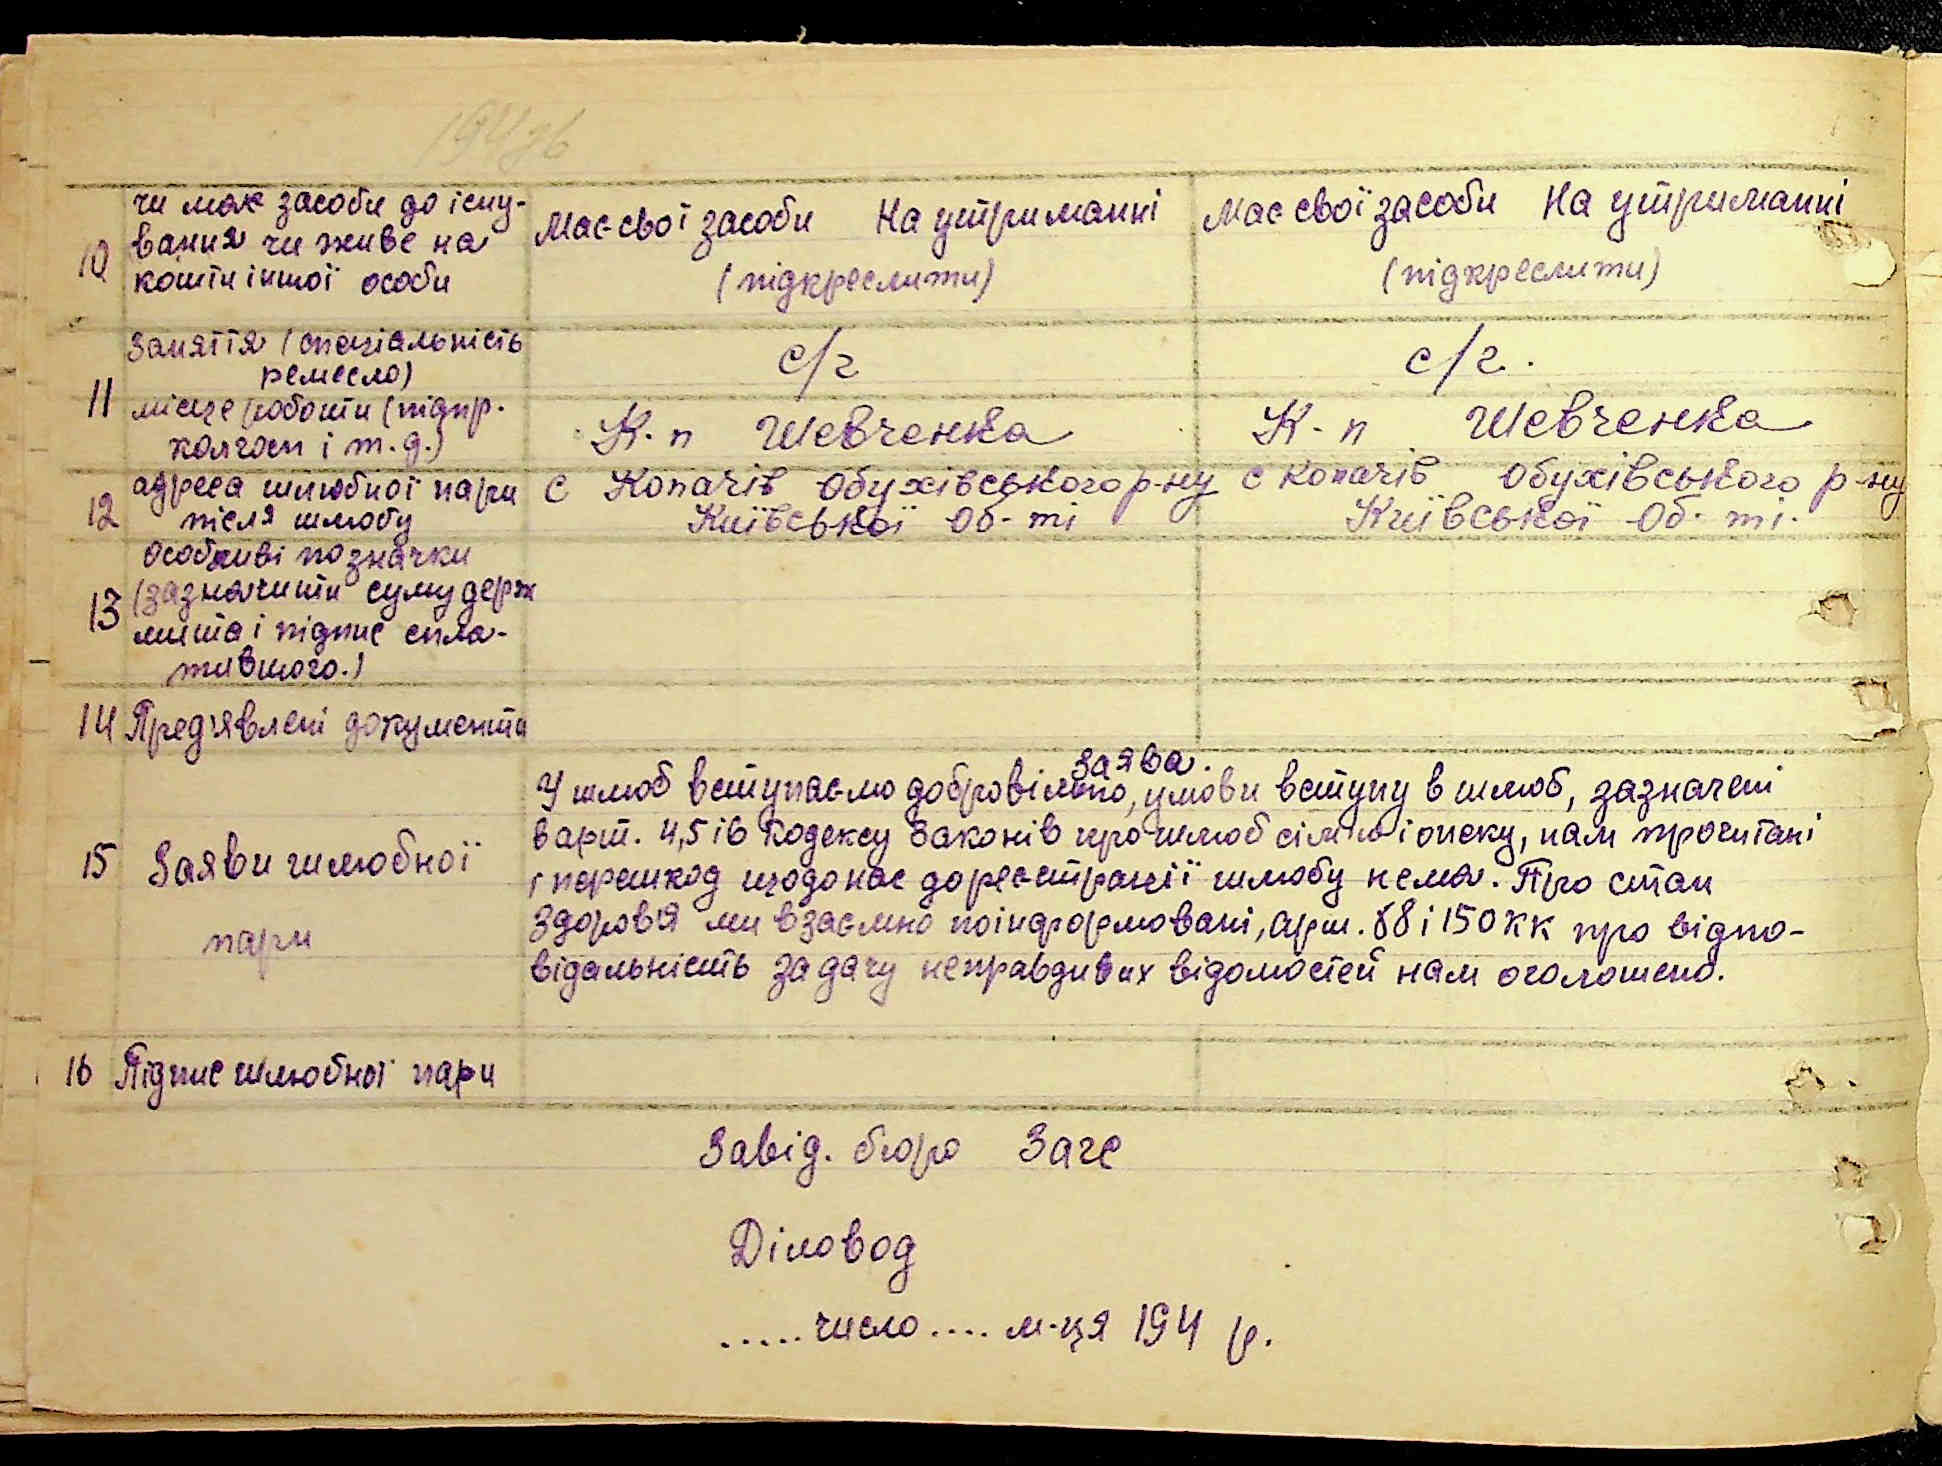 10 чи має засоби до існу-
вання чи живе на
кошти іншої особи
Має свої засоби На утриманні
(підкреслити)
Має свої засоби На утриманні
(підкреслити)
11 Заняття (спеціальність
ремесло)
с/г
с/г.
місце роботи (підпр.
колгосп і т.д.)
К-п Шевченка
К-п Шевченка
12 адреса шлюбної пари
після шлюбу
с Копачів Обухівського р-ну
Київської об-ті
с Копачів Обухівського р-ну
Київської об-ті.
13 особливі позначки
(зазначити суму держ
мита і підпис спла-
тившого.)
14 Пред'явлені документи
15 Заяви шлюбної
пари
Заява.
У шлюб вступаємо добровільно, умови вступу в шлюб, зазначені
в арт. 4,5 і 6 Кодексу Законів про шлюб сім'ю і опеку, нам прочитані
і перешкод щодо нас до реєстрації шлюбу нема. Про стан
здоров'я ми взаємно поінформовані, арт. 88 і 150 КК про відпо-
відальність за дачу неправдивих відомостей нам оголошено.
16 Підпис шлюбної пари
Завід. бюро Загс
Діловод
.....число.... м-ця 194 р.